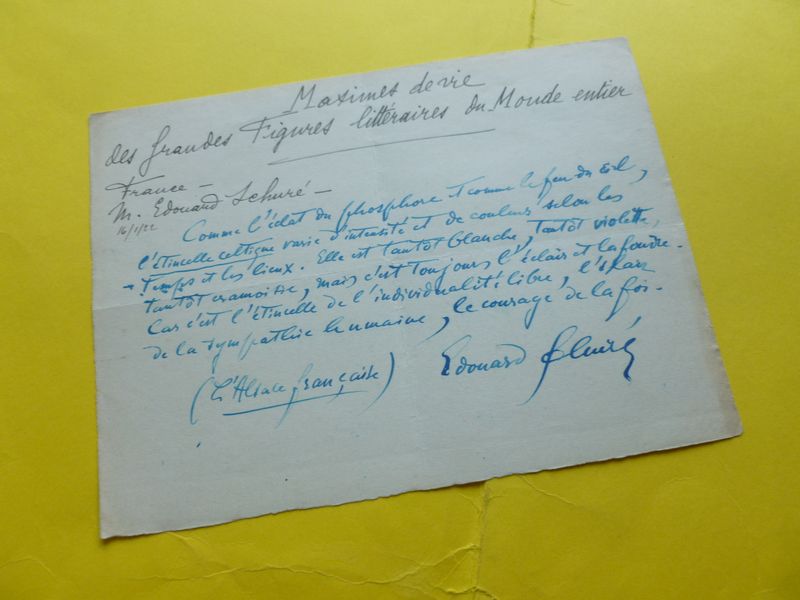 Maximes de vie
des Grandes Figures littéraires du Monde entier
France –
M. Edouard Schuré –
16/1/22
Comme l'éclat du phosphore et comme le feu du ciel,
l'étincelle celtique varie d'intensité et de couleurs selon les
temps et les lieux. Elle est tantôt blanche, tantôt violette,
tantôt cramoisie, mais c'est toujours l'éclair et la foudre.
Car c'est l'étincelle de l'individualité libre, l'éclair
de la sympathie humaine, le courage de la foi.
(L'Alsace française)
Edouard Schuré